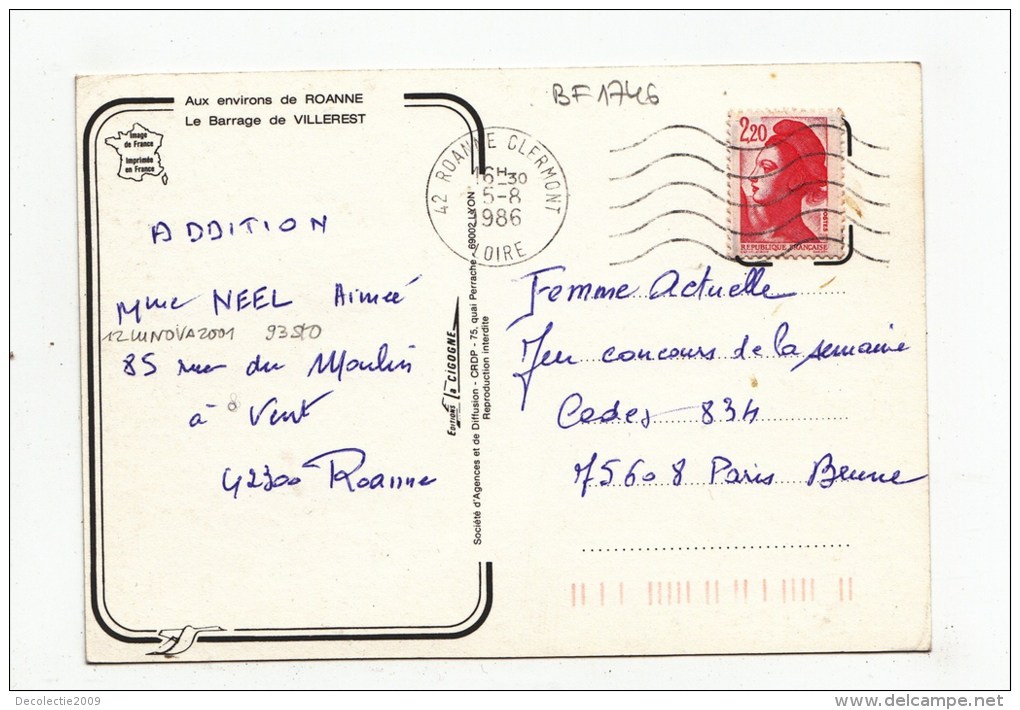 BF1746
Aux environs de ROANNE
Le Barrage de VILLEREST
Image
de France
Imprimée
en France
42 ROANNE CLERMONT
16H-30
5-8
1986
LOIRE
2,20
POSTES
REPUBLIQUE FRANÇAISE
ADDITION
Mme NEEL Aimée
12LUNOVA2001
85 rue du Moulin
à Vent
42300 Roanne
Editions La CIGOGNE
Société d'Agences et de Diffusion - CRDP - 75, quai Perrache - 69002 LYON
Reproduction interdite
Femme Actuelle
Jeu concours de la semaine
Cedex 834
75608 Paris Brune
Decolectie2009
delcampe.net